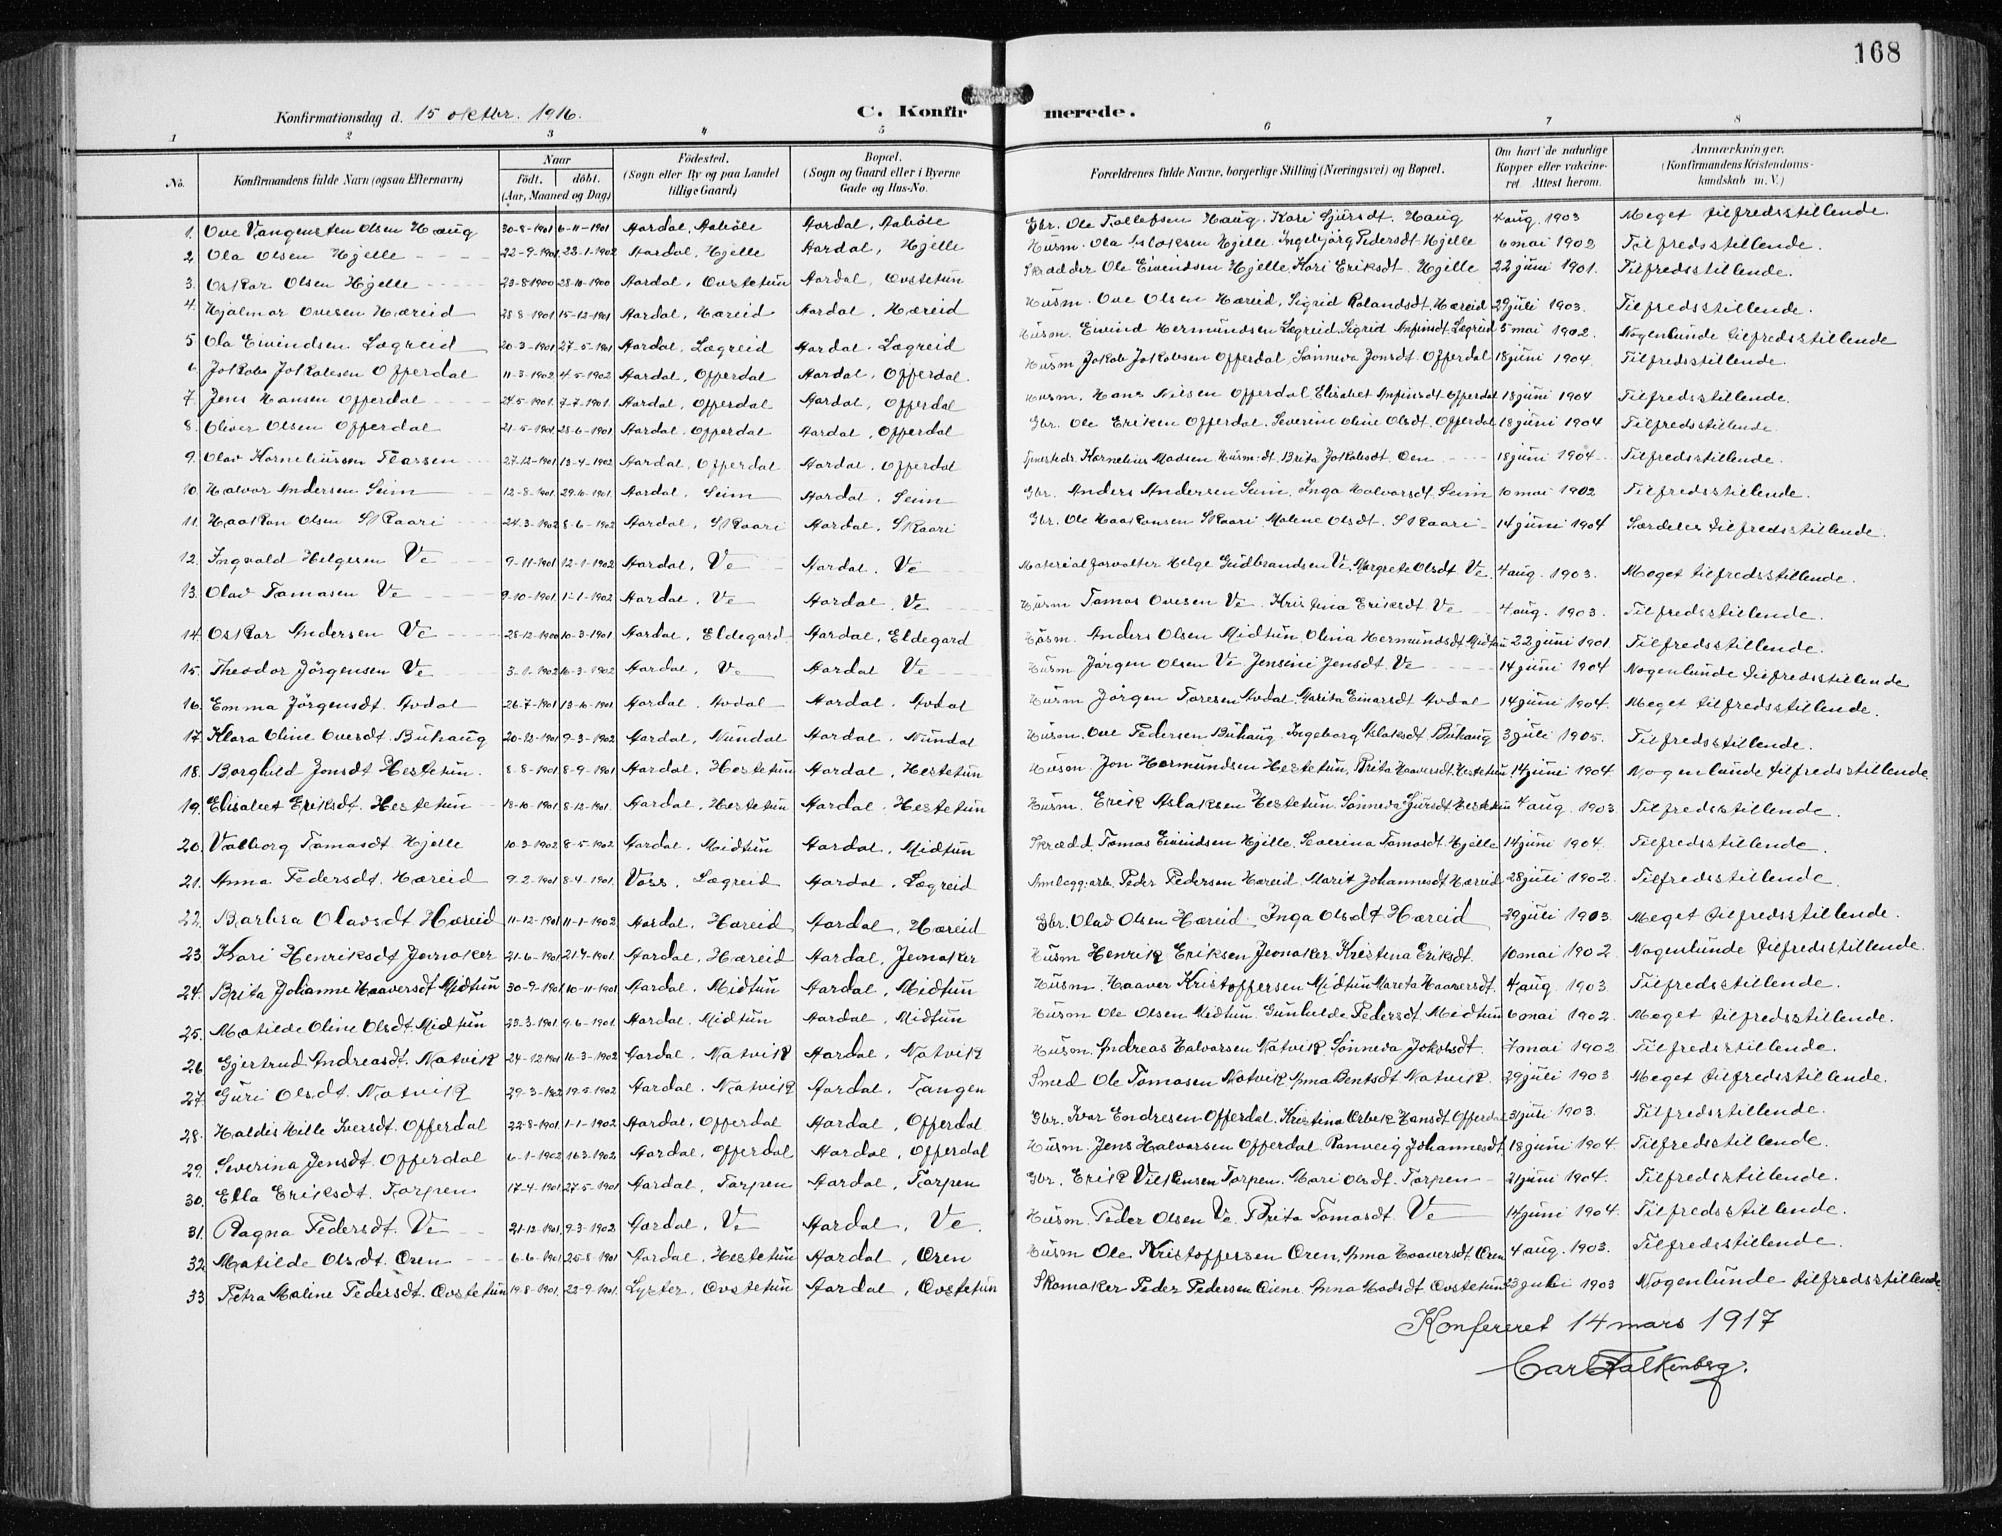 168
Konfirmationsdag d. 15 oktbr. 1916.
C. Konfirmerede.
1 2 3 4 5 6 7 8
No. Konfirmandens fulde Navn (ogsaa Efternavn) Naar født. døbt. (Aar, Maaned og Dag) Fødested. (Sogn eller By og paa Landet tillige Gaard) Bopæl. (Sogn og Gaard eller i Byerne Gade og Hus-No. Forældrenes fulde Navne, borgerlige Stilling (Næringsvei) og Bopæl. Om havt de naturlige Kopper eller vakcineret. Attest herom. Anmærkninger. (Konfirmandens Kristendomskundskab m. V.)
1. Ove Vangensten Olsen Haug 30-8-1901 6-11-1901 Aardal, Asböle Aardal, Asböle Gbr. Ole Tollefsen Haug. Kari Sjursdt. Haug 4 aug. 1903 Meget tilfredsstillende.
2. Ola Olsen Hjelle 22-9-1901 23-1-1902 Aardal, Hjelle Aardal, Hjelle Husm. Ola Aslaksen Hjelle. Ingebjörg Pedersdt. Hjelle 6 mai 1902 Tilfredsstillende.
3. Oskar Olsen Hjelle 23-8-1900 28-10-1900 Aardal, Ovstetun Aardal, Ovstetun Skrædder Ole Eivindsen Hjelle, Kari Eriksdt. Hjelle 22 juni 1901. Tilfredsstillende.
4. Hjalmar Ovesen Hæreid 28-8-1901 15-12-1901 Aardal, Hæreid Aardal, Hæreid Husm. Ove Olsen Hæreid, Sigrid Rolandsdt. Hæreid 29 juli 1903. Tilfredsstillende.
5 Ola Eivindsen Lægreid 20-3-1901 27-5-1901 Aardal, Lægreid Aardal, Lægreid Husm. Eivind Hermundsen Lægreid, Sigrid Anfinsdt. Lægreid 5 mai 1902. Nogenlunde tilfredsstillende
6 Jakob Jakobsen Offerdal 11-3-1902 4-5-1902 Aardal, Offerdal Aardal, Offerdal. Husm Jakob Jakobsen Offerdal, Sønneva Jonsdt. Offerdal 18 juni 1904. Tilfredsstillende.
7. Jens Hansen Offerdal 24-5-1901. 7-7-1901. Aardal, Offerdal Aardal, Offerdal Husm. Hans Nilsen Offerdal, Elisabet Anfinsdt. Offerdal 18 juni 1904 Tilfredsstillende.
8. Oliver Olsen Offerdal 21-5-1901 23-6-1901 Aardal, Offerdal Aardal, Offerdal Gbr. Ole Eriken Offerdal. Severine Oline Olsdt. Offerdal 18 juni 1904 Tilfredsstillende
9. Olav Korneliussen 27-12-1901 13-4-1902 Aardal, Offerdal Aardal, Offerdal Kornelius Madsen Husm.dt. Brita Jakobsdt. Oen 18 juni 1904 Tilfredsstillende.
10. Halvor Andersen Seim 12-8-1901 29-10-1901 Aardal, Seim Aardal, Seim Gbr. Anders Andersen Seim, Inga Halvorsdt. Seim 10 mai 1902 Tilfredsstillende.
11. Haakon Olsen Skaari 24-3-1902 8-6-1902 Aardal, Skaari Aardal, Skaari Gbr. Ole Haakonsen Skaari. Malene Olsdt. Skaari 14 juni 1904 Særdeles tilfredsstillende.
12. Ingvald Helgesen Ve 9-11-1901 12-1-1902 Aardal, Ve Aardal, Ve Materialforvalter Helge Gudbrandsen Ve. Margrete Olsdt. Ve. 4 aug. 1903. Meget tilfredsstillende.
13. Olav Tomasen Ve 9-10-1901 1-1-1902 Aardal, Ve Aardal, Ve Husm Tomas Ovesen Ve. Kristina Eriksdt. Ve 4 aug. 1903. Tilfredsstillende.
14. Oskar Andersen Ve 28-12-1900 10-3-1901 Aardal, Eldegard Aardal, Eldegard Husm. Anders Olsen Midtun, Olina Hermundsdt. Midtun 22 juni 1901 Tilfredsstillende.
15. Theodor Jörgensen Ve 3-1-1902 16-3-1902 Aardal, Ve Aardal Ve Husm Jørgen Olsen Ve. Jensine Jensdt. Ve 14 juni 1904 Nogenlunde tilfredsstillende
16. Emma Jörgensdt. Avdal 26-7-1901 13-10-1901 Aardal, Avdal Aardal, Avdal Husm Jørgen Toresen Avdal. Marita Einarsdt Avdal 14 juni 1904. Meget tilfredsstillende.
17. Klara Oline Ovesdt Buhaug 20-12-1901 9-3-1902 Aardal, Nundal Aardal, Nundal Husm. Ove Pedersen Buhaug, Ingeborg Aslaksdt Buhaug 3 juli 1905. Tilfredsstillende.
18. Borghild Jonsdt Hestetun. 8-8-1901 8-9-1901 Aardal, Hestetun Aardal, Hestetun Husm. Jon Hermundsen Hestetun, Brita Haaversdt. Hestetun 14 juni 1904 Nogenlunde tilfredsstillende.
19. Elisabet Eriksdt. Hestetun 18-10-1901 8-12-1901. Aardal, Hestetun Aardal, Hestetun Husm. Erik Aslaksen Hestetun. Sønneva Sjursdt. Hestetun 4 aug. 1903 Tilfredsstillende.
20. Valborg Tomasdt Hjelle 10-2-1902 8-5-1902 Aardal, Midtun Aardal, Midtun Skrædd. Tomas Eivindsen Hjelle. Severina Tomasdt. Hjelle 14 juni 1904. Tilfredsstillende.
21. Anna Pedersdt. Hæreid 9-2-1901 8-4-1901. Voss, Lægreid Aardal, Lægreid Anlegg.arb. Peder Pedersen Hæreid. Marit Johannesdt Hæreid 28 juli 1902. Tilfredsstillende.
22. Barbra Olavsdt Hæreid 11-12-1901 11-1-1902 Aardal, Hæreid Aardal, Hæreid Gbr. Olav Olsen Hæreid. Inga Olsdt Hæreid 29 juli 1903. Meget tilfredsstillende.
23. Kari Henriksdt Jevnaker 21-6-1901 21-7-1901. Aardal, Hæreid Aardal, Jevnaker Husm Henrik Eriksen Jevnaker. Kristina Eriksdt. 10 mai 1902 Nogenlunde tilfredsstillende.
24. Brita Johanne Haaversdt Midtun 30-9-1901 10-11-1901 Aardal, Midtun Aardal, Midtun Husm. Haaver Kristoffersen Midtun Mareta Haaversdt. 4 aug. 1903. Tilfredsstillende.
25. Matilde Oline Olsdt. Midtun 22-3-1901 9-6-1901. Aardal, Midtun Aardal, Midtun Husm Ole Olsen Midtun. Gunhilde Pedersdt Midtun 6 mai 1902. Meget tilfredsstillende.
26 Gjertrud Andreasdt. Natvik 24-12-1901 16-3-1902 Aardal, Natvik Aardal, Natvik Husm. Andreas Halvorsen Natvik. Sønneva Jokobsdt 7 mai 1902 Tilfredsstillende.
27. Guri Olsdt. Natvik 29-3-1902 19-5-1902 Aardal, Natvik Aardal, Tangen Smed Ole Tomasen Natvik Anna Bentsdt Natvik. 29 juli 1903 Meget tilfredsstillende.
28. Haldis Hille Iversdt. Offerdal 22-8-1901. 1-1-1902 Aardal, Offerdal Aardal, Offerdal Gbr. Ivar Endresen Offerdal. Kristina Orbek Hansdt. Offerdal 31 juli 1903. Tilfredsstillende.
29. Severina Jensdt. Offerdal 6-1-1902 16-3-1902 Aardal, Offerdal Aardal, Offerdal Husm. Jens Halvorsen Offerdal. Ranveig Johannesdt 18 juni 1904 Tilfredsstillende.
30. Ella Eriksdt. Torpen 17-4-1901 27-5-1901 Aardal, Torpen Aardal, Torpen Gbr. Erik Vilkensen Torpen. Mari Olsdt. Torpen 21 juni 1904. Tilfredsstillende.
31. Ragna Pedersdt. Ve 21-12-1901. 9-3-1902 Aardal, Ve Aardal, Ve. Husm. Peder Olsen Ve. Brita Tomasdt. Ve 14 juni 1904. Tilfredsstillende.
32. Matilde Olsdt. Oren 6-6-1901 25-8-1901 Aardal, Hestetun Aardal, Oren Husm Ole Kristoffersen Oren, Anna Haaversdt. Oren 4 aug. 1903. Tilfredsstillende.
33. Petra Maline Pedersdt. Ovstetun 19-8-1901. 22-9-1901. Lyster, Ovstetun Aardal, Ovstetun Skomaker Peder Pedersen Anna Madsdt Ovstetun 23 juli 1903 Nogenlunde tilfredsstillende.
Konfereret 14 mars 1917
Carl Falkenberg.